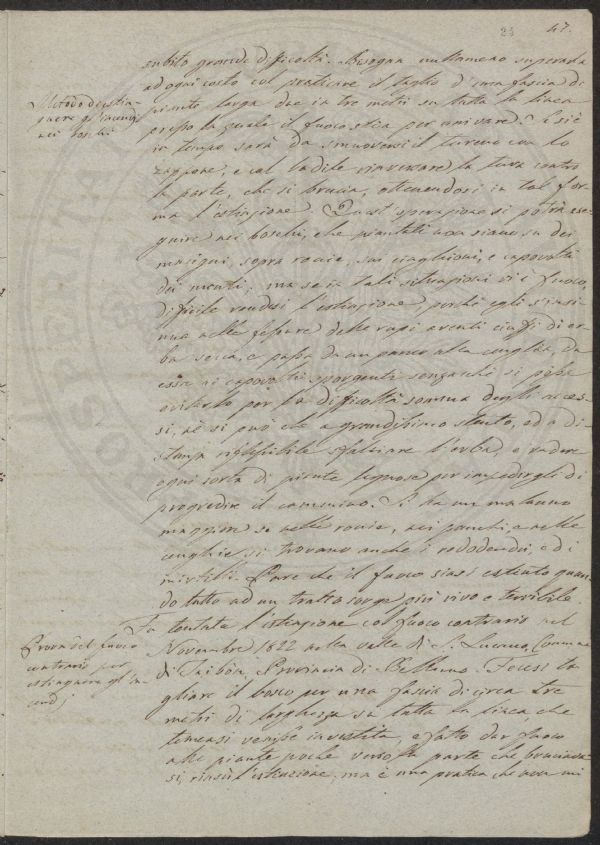 24 47.
subito grande difficoltà. Bisogna nullameno superarla
ad ogni costo col praticare il taglio d'una fascia di
Metodo d'estin-
guere gl'incendj
nei boschi
piante larga due in tre metri su tutta la linea
presso la quale il fuoco stia per arrivare. E si è
in tempo sarà da smuovervi il terreno con lo
zappone, e col badile rinversare la terra contro
la parte, che si brucia, ottenendosi in tal for-
ma l'estinzione. Quest'operazione si potrà ese-
guire nei boschi, che piantati non siano su dei
macigni, sopra rovie, sui cinghioni, e capovolti
dei monti; ma se in tali situazioni vi è fuoco,
difficile rendesi l'estinzione, perché egli s'insi-
nua nelle fessure delle rupi aventi ciuffi di er-
ba secca, e passa da un panco alla cenghia, da
essa ai capovolti sporgenti senza che si possa
evitarlo per la difficoltà somma degli acces-
si, nè si può che a grandissimo stento, ed a di-
stanza riflessibile sfalciare l'erba, e radere
ogni sorta di piante legnose per impedirgli di
progredire il cammino. Si ha un malanno
maggiore se nelle rovie, nei panchi, e nelle
cenghie si trovano anche i rododendri, ed i
mirtilli. Pare che il fuoco siasi estinto quan-
do tutto ad un tratto sorge più vivo e terribile.
Fu tentata l'estinzione col fuoco contrario nel
Prova del fuoco
contrario per
estinguere gl'in-
cendj
Novembre 1822 nella valle di S. Lucano, Comune
di Taibòn, Provincia di Belluno. Fecesi ta-
gliare il bosco per una fascia di circa tre
metri di larghezza su tutta la linea, che
temeasi venisse investita, e fatto dar fuoco
alle piante poche verso la parte che bruciava-
si, riuscì l'estinzione, ma è una pratica che non mi